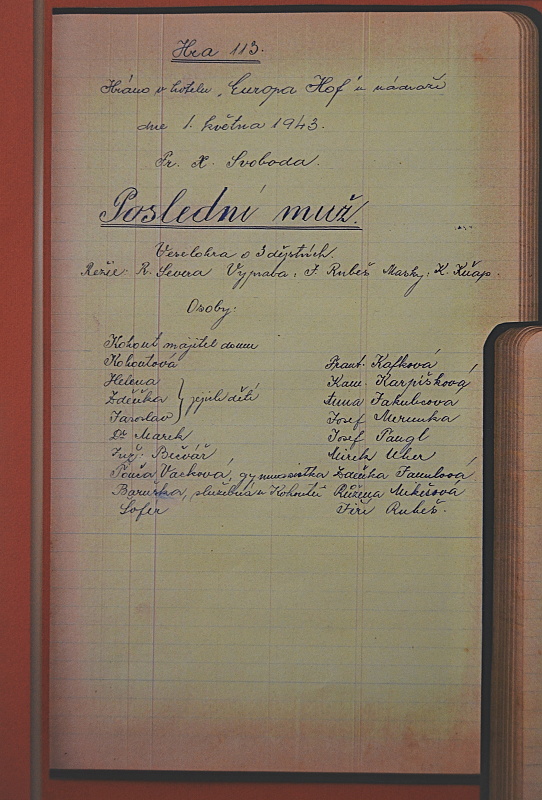 Hra 113.
Hráno v hotelu „Europa Hof“ u nádraží
dne 1. května 1943.
F. X. Svoboda.
Poslední muž.
Veselohra o 3 dějstvích.
Režie: R. Severa Výprava: J. Rubeš Masky: K. Knap.
Osoby:
Kohout majitel domu
Kohoutová Frant. Kafková
Helena Kam. Karpíšková
Zdeňka } jejich děti Anna Jakubcová
Jaroslav Josef Merunka
Dr Marek Josef Paugl
Inž. Bečvář Mirek Uher
Vacková, gymnasistka Zdeňka
Baruška, služebná u Kohoutů Růžena Mikešová
Šofer Jiří Rubeš.